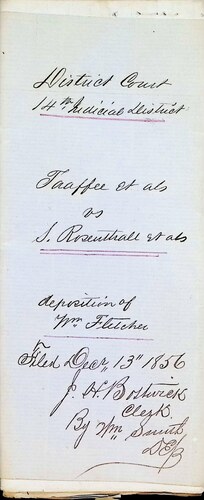 District Court
14th Judicial District
Taaffee et als
vs
S. Rosenthall et als
deposition of
Wm Fletcher
Filed Decr 13" 1856
J. H. Bostwick
Clerk
By Wm Smith